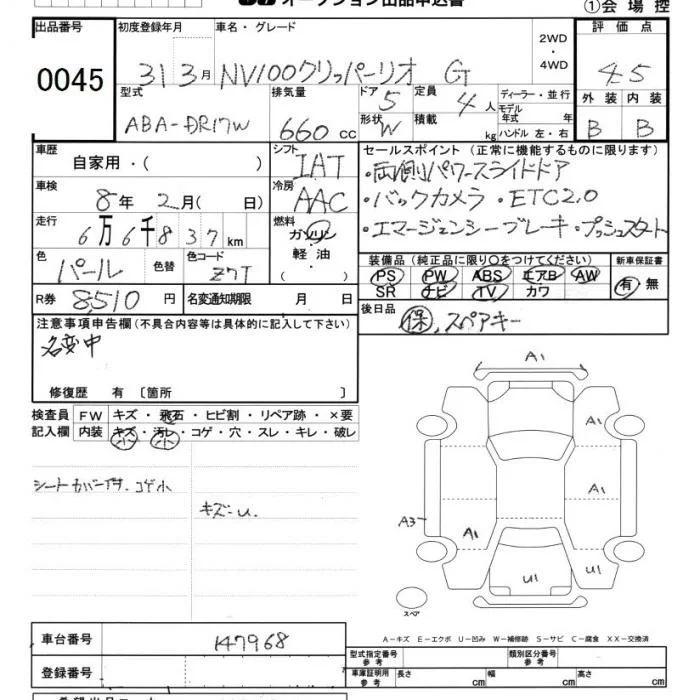 オークション出品申込書
①会場控
出品番号 0045
初度登録年月 31 3月
車名・グレード NV100クリッパーリオ G
2WD・4WD
評価点 4.5
外装 B 内装 B
型式 ABA-DR17W
排気量 660cc
ドア 5 形状 W
定員 4人
積載 kg
ディーラー・並行
モデル年式 年式
ハンドル 左・右
車歴 自家用・( )
シフト IAT
車検 8年2月( 日)
冷房 AAC
走行 6万6千837km
燃料 ガソリン 軽油・
色 パール 色替 色コード Z7T
R券 8,510円
名変通知期限 月 日
セールスポイント (正常に機能するものに限ります)
・両側パワースライドドア
・バックカメラ・ETC2.0
・エマージェンシーブレーキ・プッシュスタート
装備品 (純正品に限り○をつけてください)
新車保証書
PS PW ABS エアB AW
SR ナビ TV カワ
有・無
後日品 保、スペアキー
注意事項申告欄(不具合内容等は具体的に記入して下さい)
名変中
修復歴 有 〔箇所 〕
検査員記入欄
FW キズ・飛石・ヒビ割・リペア跡・×要
内装 キズ・汚レ・コゲ・穴・スレ・キレ・破レ
小 小
シートカバー寸. コゲ小
キズ-u.
A1
A1
A1
A3
A1
U1
U1
スペア
A-キズ E-エクボ U-凹み W-補修跡 S-サビ C-腐食 XX-交換済
車台番号 147968
登録番号
型式指定番号 参考
類別区分番号 参考
車庫証明用 参考 長さ cm 幅 cm 高さ cm